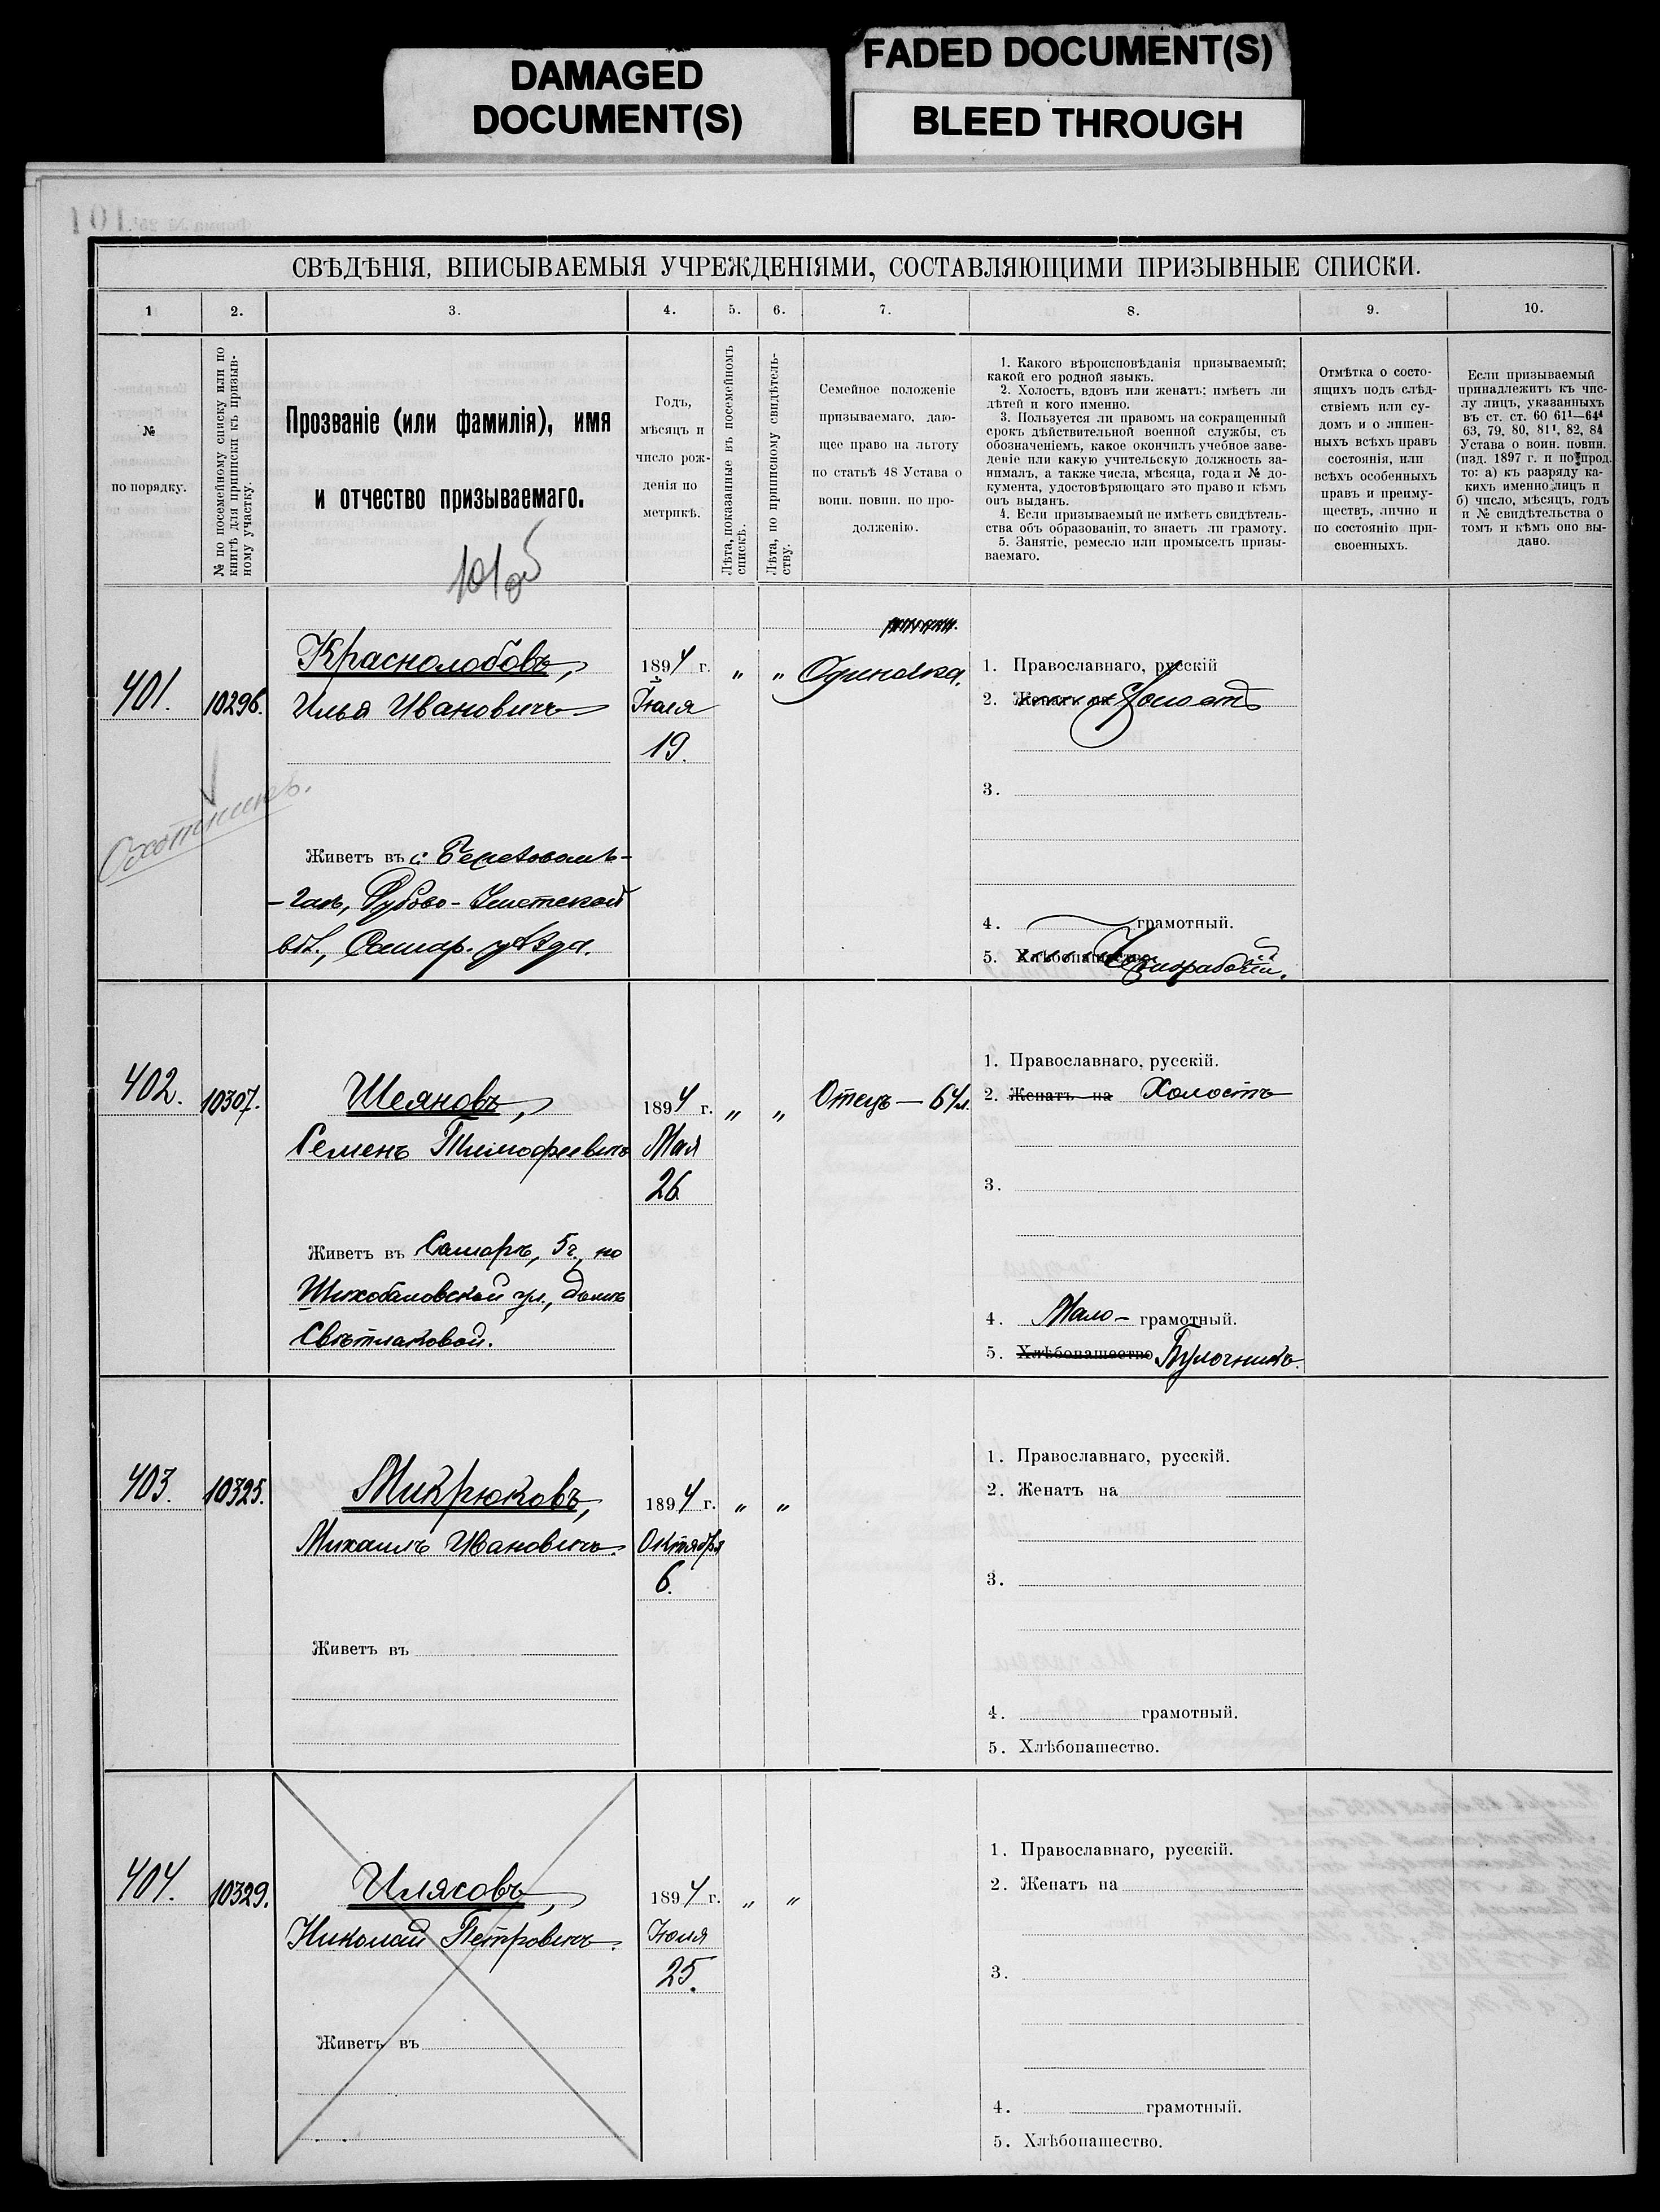 DAMAGED
DOCUMENT(S)
FADED DOCUMENT(S)
BLEED THROUGH
СВѢДѢНІЯ, ВПИСЫВАЕМЫЯ УЧРЕЖДЕНІЯМИ, СОСТАВЛЯЮЩИМИ ПРИЗЫВНЫЕ СПИСКИ.
1 2. 3. 4. 5. 6. 7. 8. 9. 10.
№
по порядку.
№ по посемейному списку или по
книгѣ для приписки къ призыв-
ному участку.
Прозваніе (или фамилія), имя
и отчество призываемаго.
101 об
Годъ,
мѣсяцъ и
число рож-
денія по
метрикѣ.
Лѣта, показанные въ посемейномъ
спискѣ.
Лѣта, по приписному свидѣтель-
ству.
Семейное положеніе
призываемаго, даю-
щее право на льготу
по статьѣ 48 Устава о
воин. повин. по про-
долженію.
1. Какого вѣроисповѣданія призываемый;
какой его родной языкъ.
2. Холостъ, вдовъ или женатъ; имѣетъ ли
дѣтей и кого именно.
3. Пользуется ли правомъ на сокращенный
срокъ дѣйствительной военной службы, съ
обозначеніемъ, какое окончилъ учебное заве-
деніе или какую учительскую должность за-
нималъ, а также числа, мѣсяца, года и № до-
кумента, удостовѣряющаго это право и кѣмъ
онъ выданъ.
4. Если призываемый не имѣетъ свидѣтель-
ства объ образованіи, то знаетъ ли грамоту.
5. Занятіе, ремесло или промыселъ призы-
ваемаго.
Отмѣтка о состо-
ящихъ подъ слѣд-
ствіемъ или су-
домъ и о лишен-
ныхъ всѣхъ правъ
состоянія, или
всѣхъ особенныхъ
правъ и преиму-
ществъ, лично и
по состоянію при-
своенныхъ.
Если призываемый
принадлежитъ къ чис-
лу лицъ, указанныхъ
въ ст. ст. 60 61¹—64⁴
63, 79, 80, 81¹, 82, 84
Устава о воин. повин.
(изд. 1897 г. и по прод.
то: а) къ разряду ка-
кихъ именно лицъ и
б) число, мѣсяцъ, годъ
и № свидѣтельства о
томъ и кѣмъ оно вы-
дано.
401. 10296.
Охотникъ.
Краснолобовъ,
Илья Ивановичъ
Живетъ въ с. Березовомъ-
-Гаѣ, Дубово-Уметской
вол., Самар. уѣзда.
1894 г.
Іюля
19.
" "
Одиночка.
1. Православнаго, русскій
2. Женатъ на Холостъ
3.
4. грамотный.
5. Хлѣбопашество Чернорабочій.
402. 10307.
Шеяновъ,
Семенъ Тимофеевичъ
Живетъ въ Самарѣ, 5 ч., по
Шихобаловской ул., домъ
Свѣтлаковой.
1894 г.
Мая
26
" "
Отецъ — 64 л.
1. Православнаго, русскій.
2. Женатъ на Холостъ
3.
4. Мало- грамотный.
5. Хлѣбопашество Булочникъ.
403. 10325.
Микрюковъ,
Михаилъ Ивановичъ.
Живетъ въ
1894 г.
Октября
6.
" "
1. Православнаго, русскій.
2. Женатъ на
3.
4. грамотный.
5. Хлѣбопашество.
404. 10329.
Илясовъ,
Николай Петровичъ.
Живетъ въ
1894 г.
Іюля
25.
" "
1. Православнаго, русскій.
2. Женатъ на
3.
4. грамотный.
5. Хлѣбопашество.